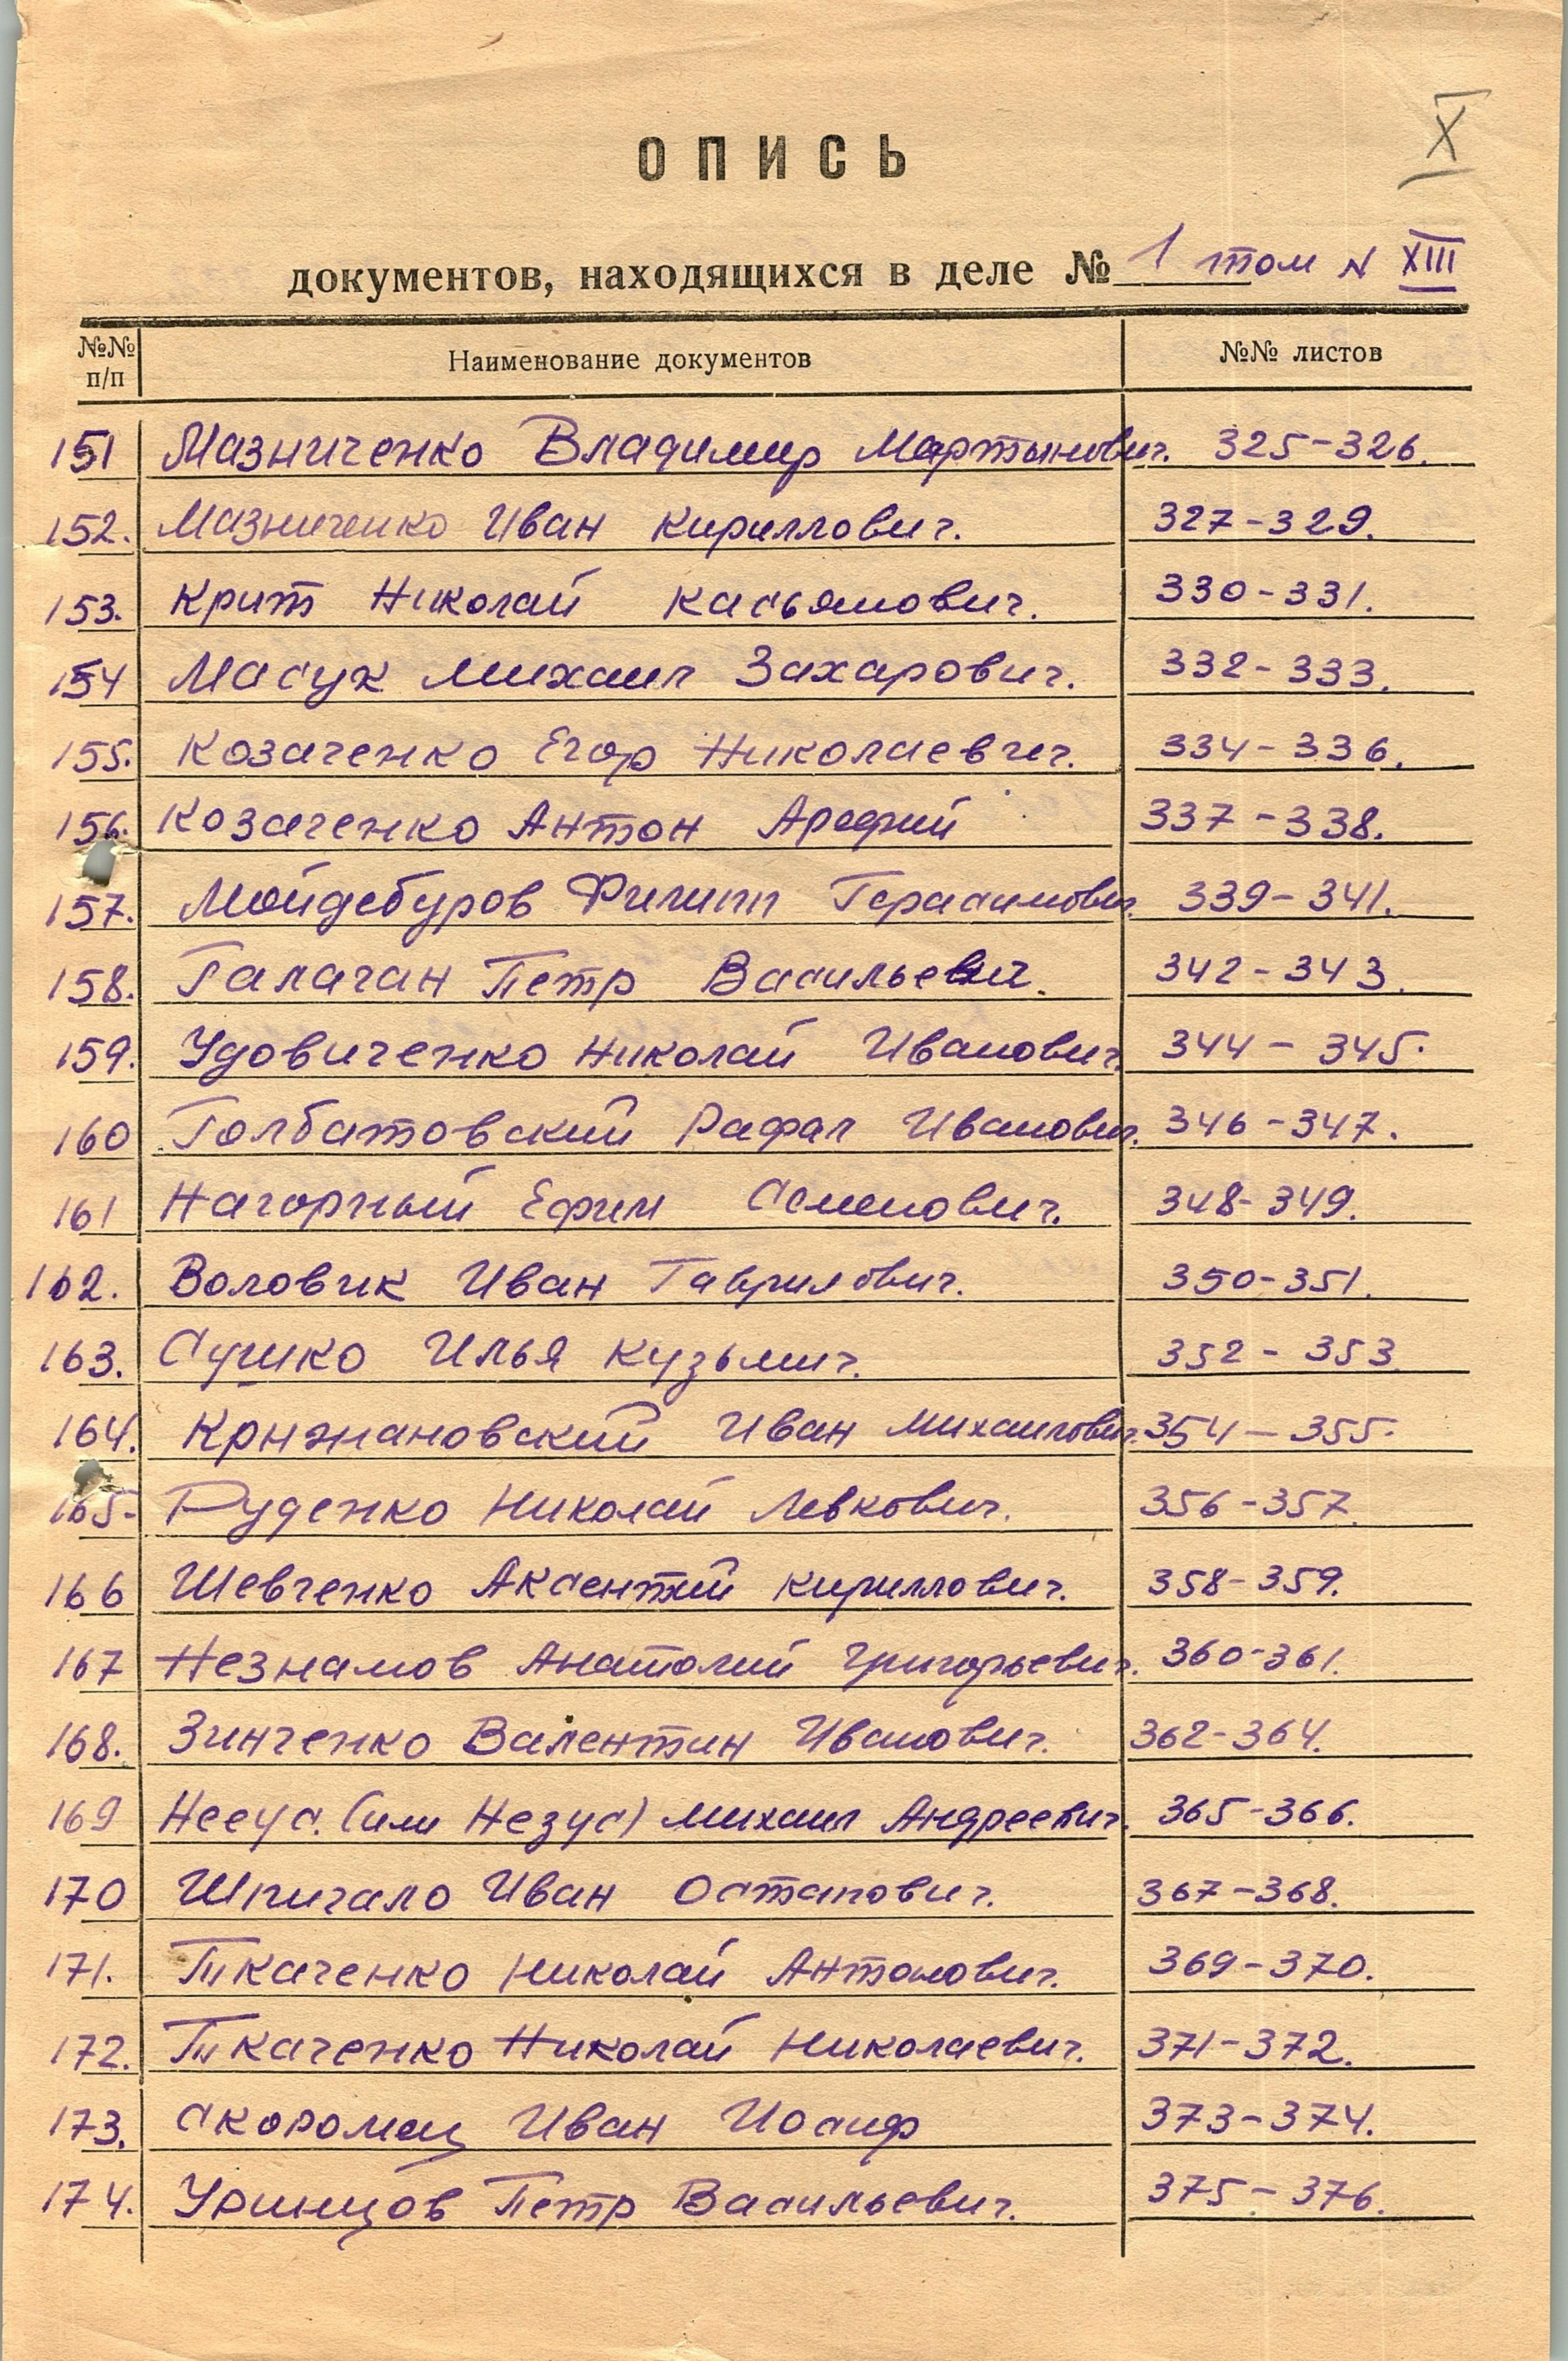 X
ОПИСЬ
документов, находящихся в деле № 1 том N XIII
№№ п/п Наименование документов №№ листов
151 Мазниченко Владимир Мартынович. 325-326.
152. Мазниченко Иван Кириллович. 327-329.
153. Крит Николай Касьянович. 330-331.
154 Масук Михаил Захарович. 332-333.
155. Козаченко Егор Николаевич. 334-336.
156. Козаченко Антон Арефий 337-338.
157. Мойдебуров Филипп Герасимович. 339-341.
158. Галаган Петр Васильевич. 342-343.
159. Удовиченко Николай Иванович. 344-345.
160 Голбатовский Рафал Иванович. 346-347.
161 Нагорный Ефим Семенович. 348-349.
162. Воловик Иван Гаврилович. 350-351.
163. Сушко Илья Кузьмич. 352-353
164. Крыжановский Иван Михаилович. 354-355.
165. Руденко Николай Левкович. 356-357.
166 Шевченко Аксентий Кириллович. 358-359.
167 Незнамов Анатолий Григорьевич. 360-361.
168. Зинченко Валентин Иванович. 362-364.
169 Нееус. (или Незус) Михаил Андреевич. 365-366.
170 Шпигало Иван Остапович. 367-368.
171. Ткаченко Николай Антонович. 369-370.
172. Ткаченко Николай Николаевич. 371-372.
173. Скоромец Иван Иосиф 373-374.
174. Уринцов Петр Васильевич. 375-376.